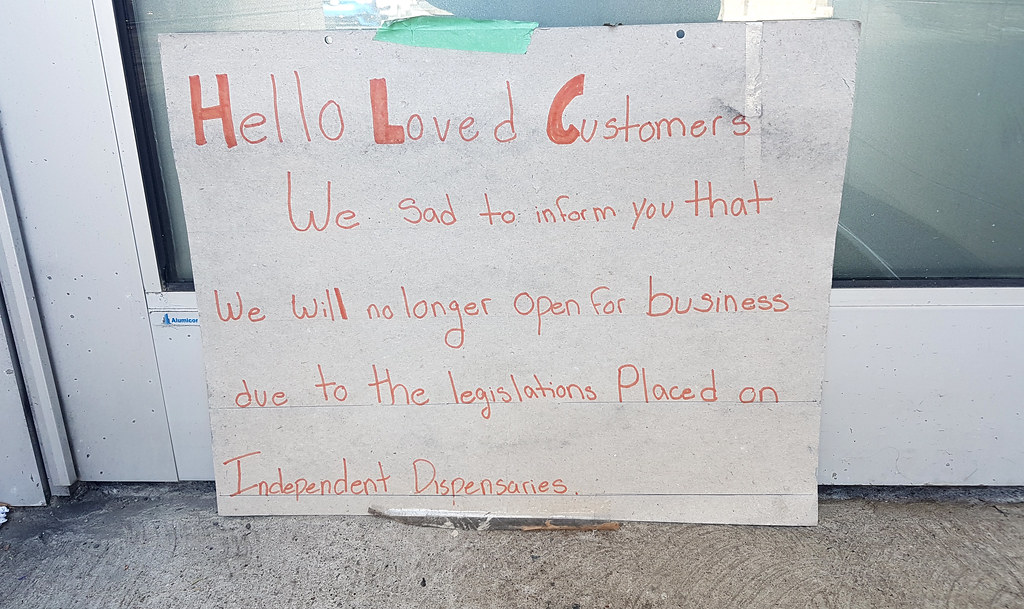 Hello Loved Customers
We sad to inform you that
We will no longer open for business
due to the legislations Placed on
Independent Dispensaries.
Alumicor